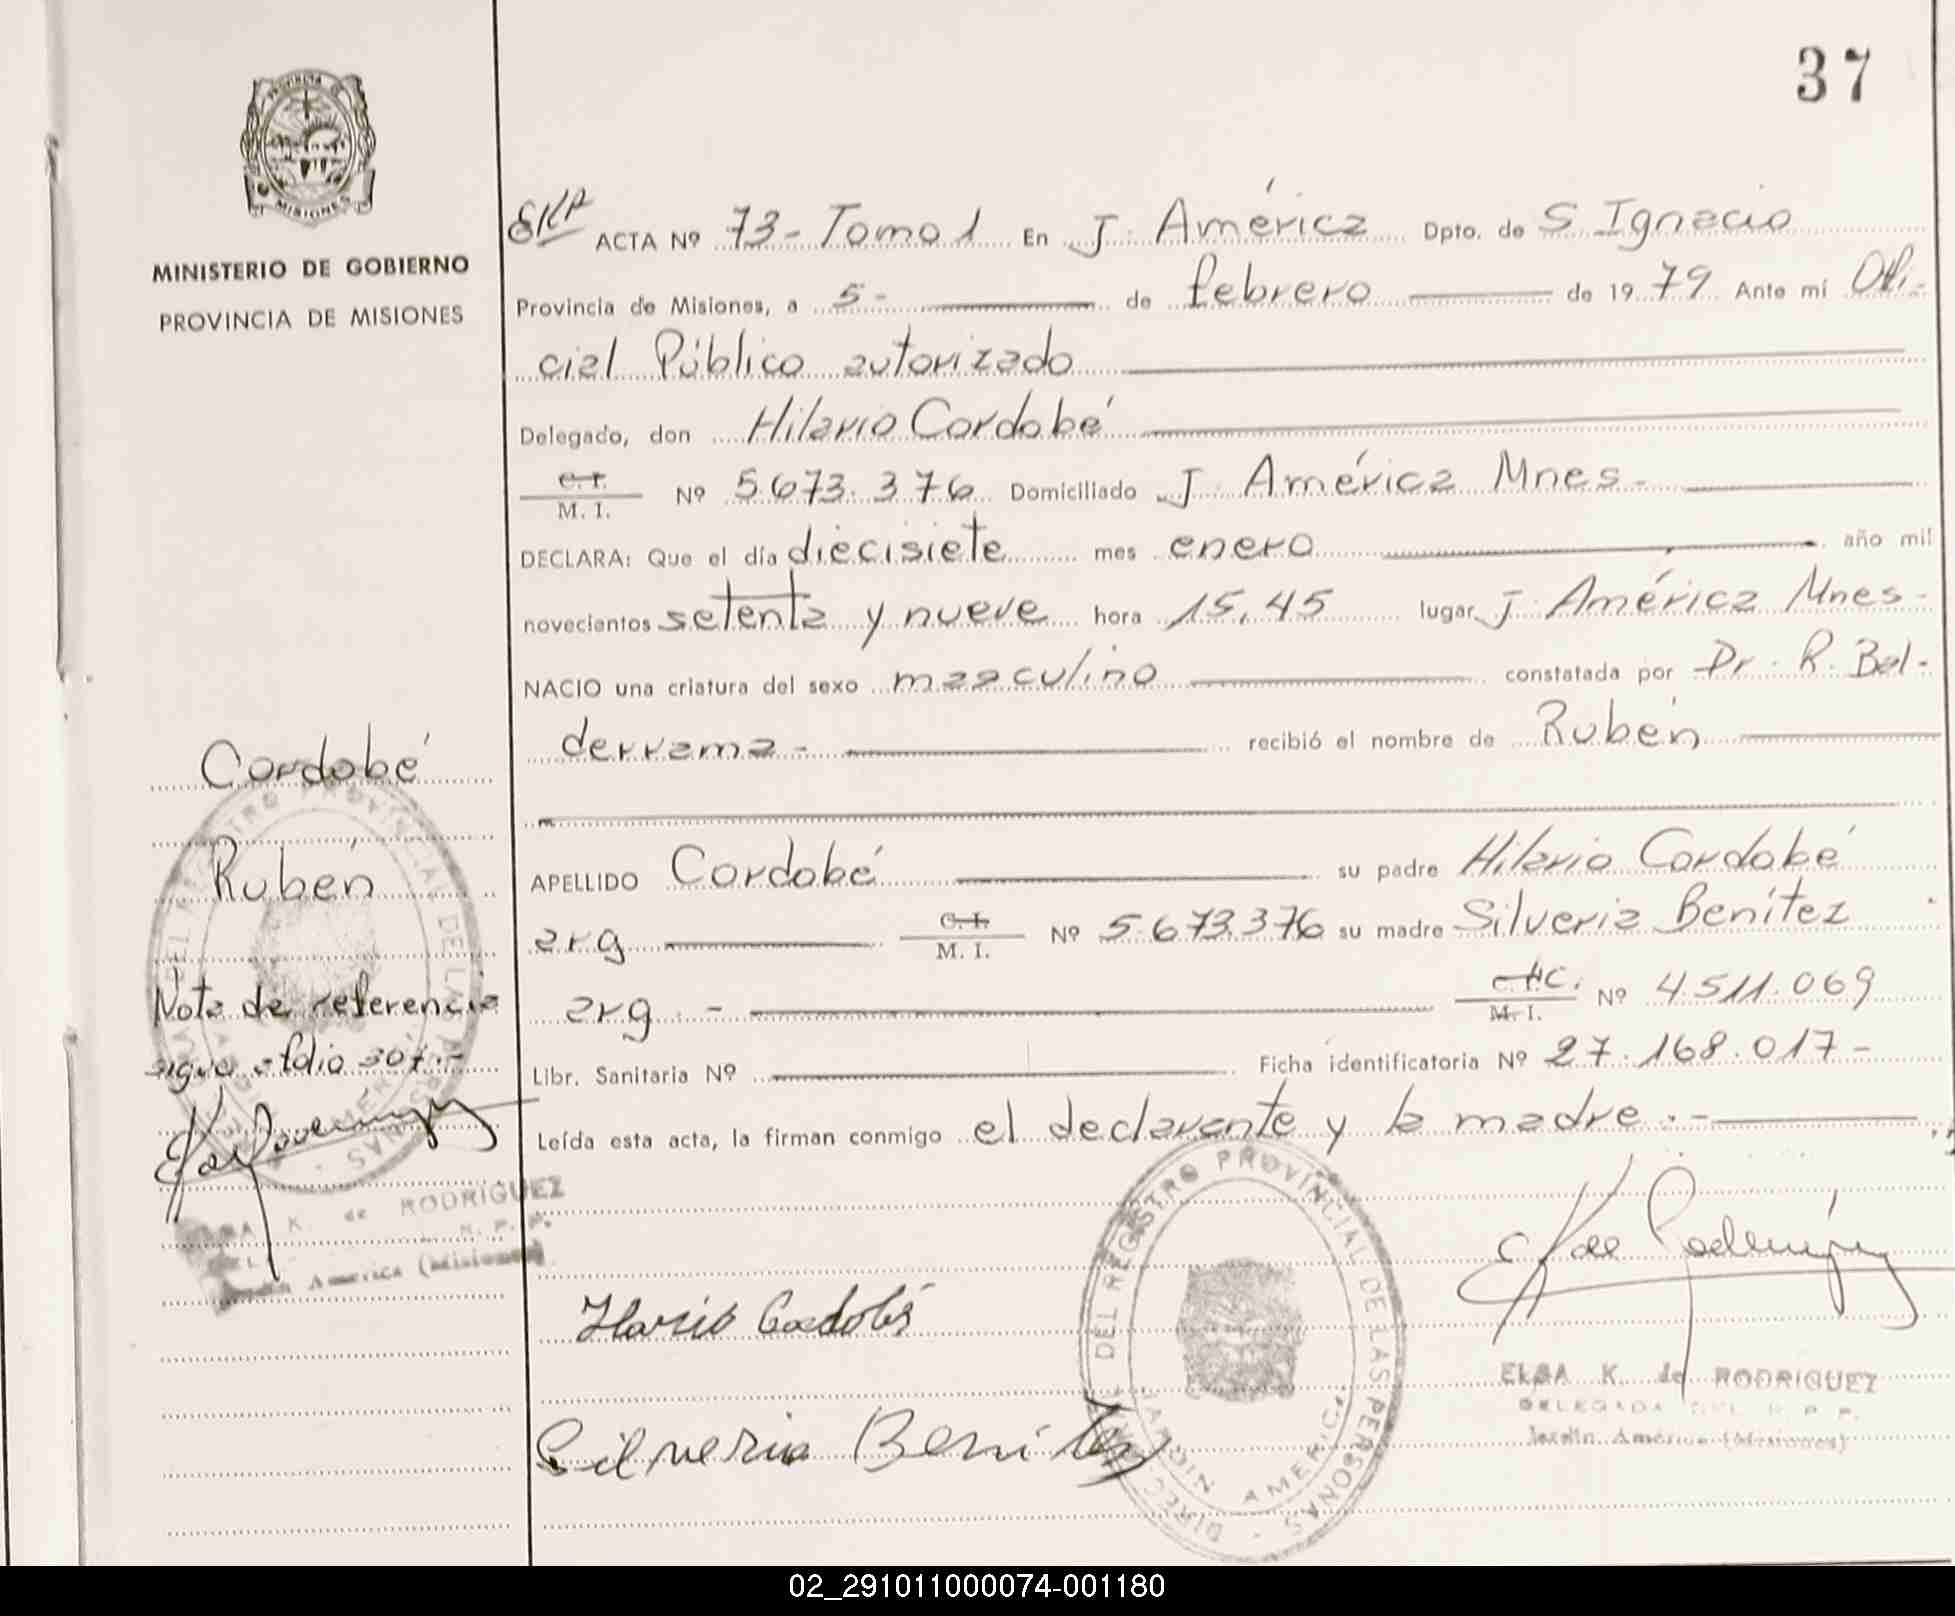 37
PROVINCIA DE
MISIONES
MINISTERIO DE GOBIERNO
PROVINCIA DE MISIONES
ACTA Nº 73 - Tomo 1 En J. América Dpto. de S. Ignacio
Provincia de Misiones, a 5 - de febrero de 1979 Ante mí Ofi-
cial Público autorizado
Delegado, don Hilario Cordobé
C. I.
M. I. Nº 5.673.376 Domiciliado J. América Mnes -
DECLARA: Que el día diecisiete mes enero año mil
novecientos setenta y nueve hora 15,45 lugar J. América Mnes -
NACIO una criatura del sexo masculino constatada por Dr. R. Bal-
derrama - recibió el nombre de Rubén
APELLIDO Cordobé su padre Hilario Cordobé
arg C. I.
M. I. Nº 5.673.376 su madre Silveria Benítez
arg. - C.
M. I. Nº 4.511.069
Libr. Sanitaria Nº Ficha identificatoria Nº 27.168.017 -
Leída esta acta, la firman conmigo el declarante y la madre. -
Cordobé
Rubén
Nota de referencia
sigue folio 307. -
ELSA K. de RODRIGUEZ
América (Misiones)
Silveria Benitez
DIREC DEL REGISTRO PROVINCIAL DE LAS PERSONAS -
JARDIN AMERICA
ELSA K. de RODRIGUEZ
DELEGADA DEL R. P. P.
Jardín América (Misiones)
02_291011000074-001180